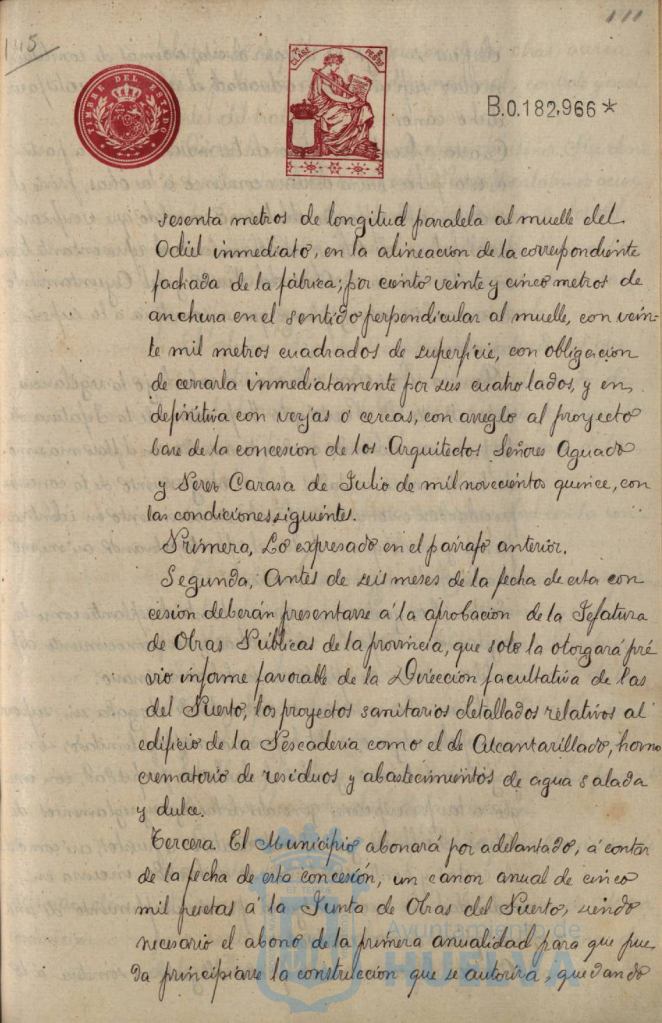 145
111
TIMBRE DEL ESTADO
CLASE
PESETAS
B.0.182,966 *
sesenta metros de longitud paralela al muelle del
Odiel inmediato, en la alineacion de la correspondiente
fachada de la fábrica; por ciento veinte y cinco metros de
anchura en el sentido perpendicular al muelle, con vein-
te mil metros cuadrados de superficie, con obligacion
de cerrarla inmediatamente por sus cuatro lados, y en
definitiva con verjas ó cercas, con arreglo al proyecto
base de la concesion de los Arquitectos Señores Aguado
y Perez Carasa de Julio de mil novecientos quince, con
las condiciones siguientes.
Primera, Lo expresado en el párrafo anterior.
Segunda, Antes de seis meses de la fecha de esta con
cesión deberán presentarse á la aprobacion de la Jefatura
de Obras Públicas de la provincia, que solo la otorgará pré
vio informe favorable de la Direccion facultativa de las
del Puerto, los proyectos sanitarios detallados relativos al
edificio de la Pescaderia como el de Alcantarillado, horno
crematorio de residuos y abastecimientos de agua salada
y dulce.
Tercera. El Municipio abonará por adelantado, á contar
de la fecha de esta concesión, un canon anual de cinco
mil pesetas á la Junta de Obras del Puerto, siendo
necesario el abono de la primera anualidad para que pue-
da principiarse la construccion que se autoriza, quedando
Ayuntamiento de
HUELVA